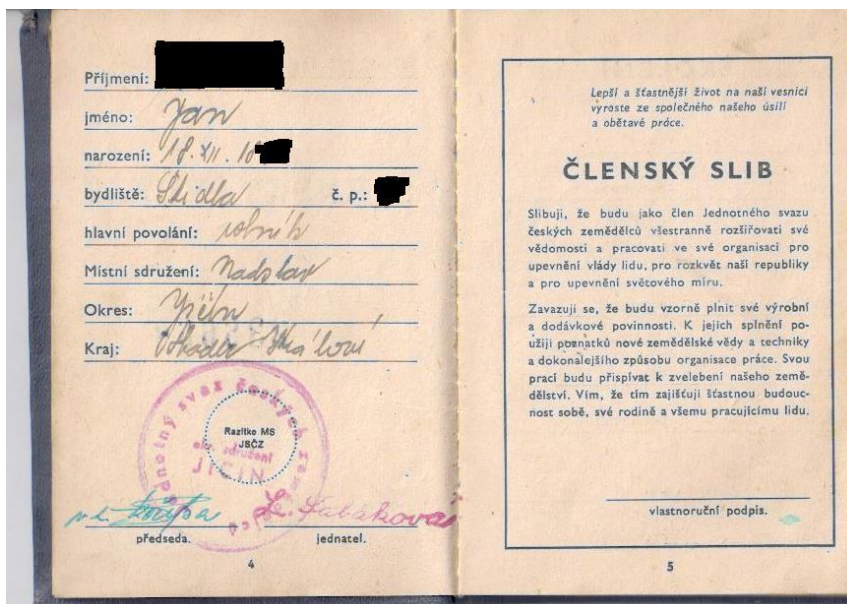 Příjmení:
jméno: Jan
narození: 18. XII.
bydliště: Štidla č. p.:
hlavní povolání: rolník
Místní sdružení: Nadslav
Okres: Jičín
Kraj: Hradec Králové
Jednotný svaz českých zemědělců
Razítko MS
JSČZ
okr. sdružení
JIČÍN
předseda. jednatel.
4
Lepší a šťastnější život na naší vesnici
vyroste ze společného našeho úsilí
a obětavé práce.
ČLENSKÝ SLIB
Slibuji, že budu jako člen Jednotného svazu
českých zemědělců všestranně rozšiřovati své
vědomosti a pracovati ve své organisaci pro
upevnění vlády lidu, pro rozkvět naší republiky
a pro upevnění světového míru.
Zavazuji se, že budu vzorně plnit své výrobní
a dodávkové povinnosti. K jejich splnění po-
užiji poznatků nové zemědělské vědy a techniky
a dokonalejšího způsobu organisace práce. Svou
prací budu přispívat k zvelebení našeho země-
dělství. Vím, že tím zajišťuji šťastnou budouc-
nost sobě, své rodině a všemu pracujícímu lidu.
vlastnoruční podpis.
5